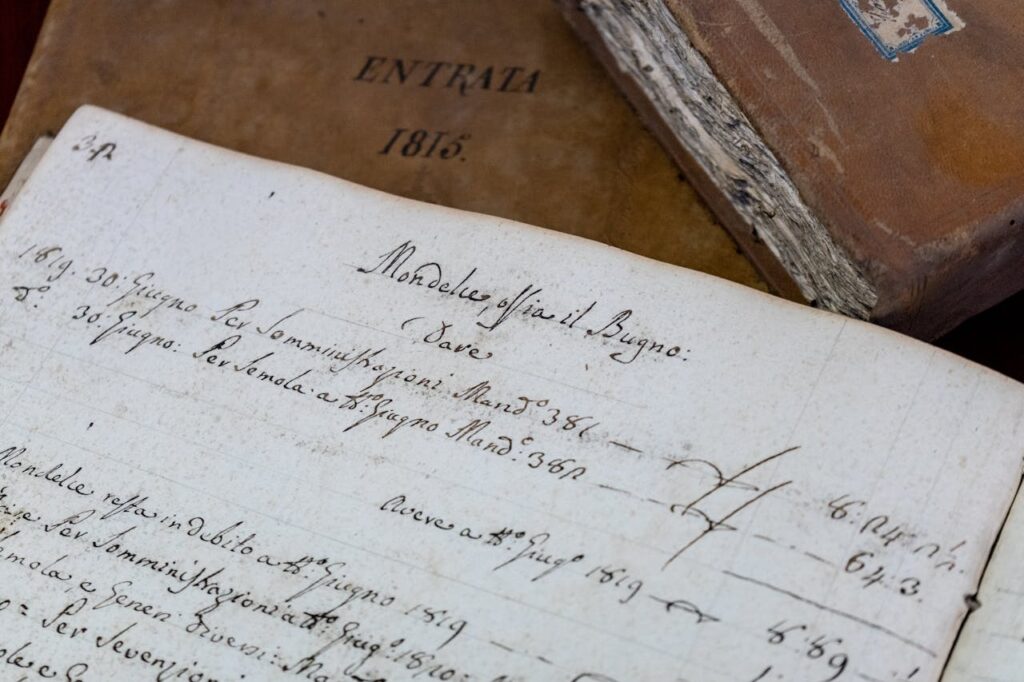 ENTRATA
1815.
Mondelie, ossia il Bugno:
Dare
1819. 30: Giugno Per Somministrazioni Mand.º 381
d.º: 30: Giugno: Per Semola a tt.º Giugno Mand.º: 382 64. 3.
Avere a tt.º Giug.º 1819
Mondelie resta in debito a tt.º Giugno 1819
Per Somministrazioni a tt.º Giug.º 1820:
Semola, e Generi diversi:
= Per Sevenzioni